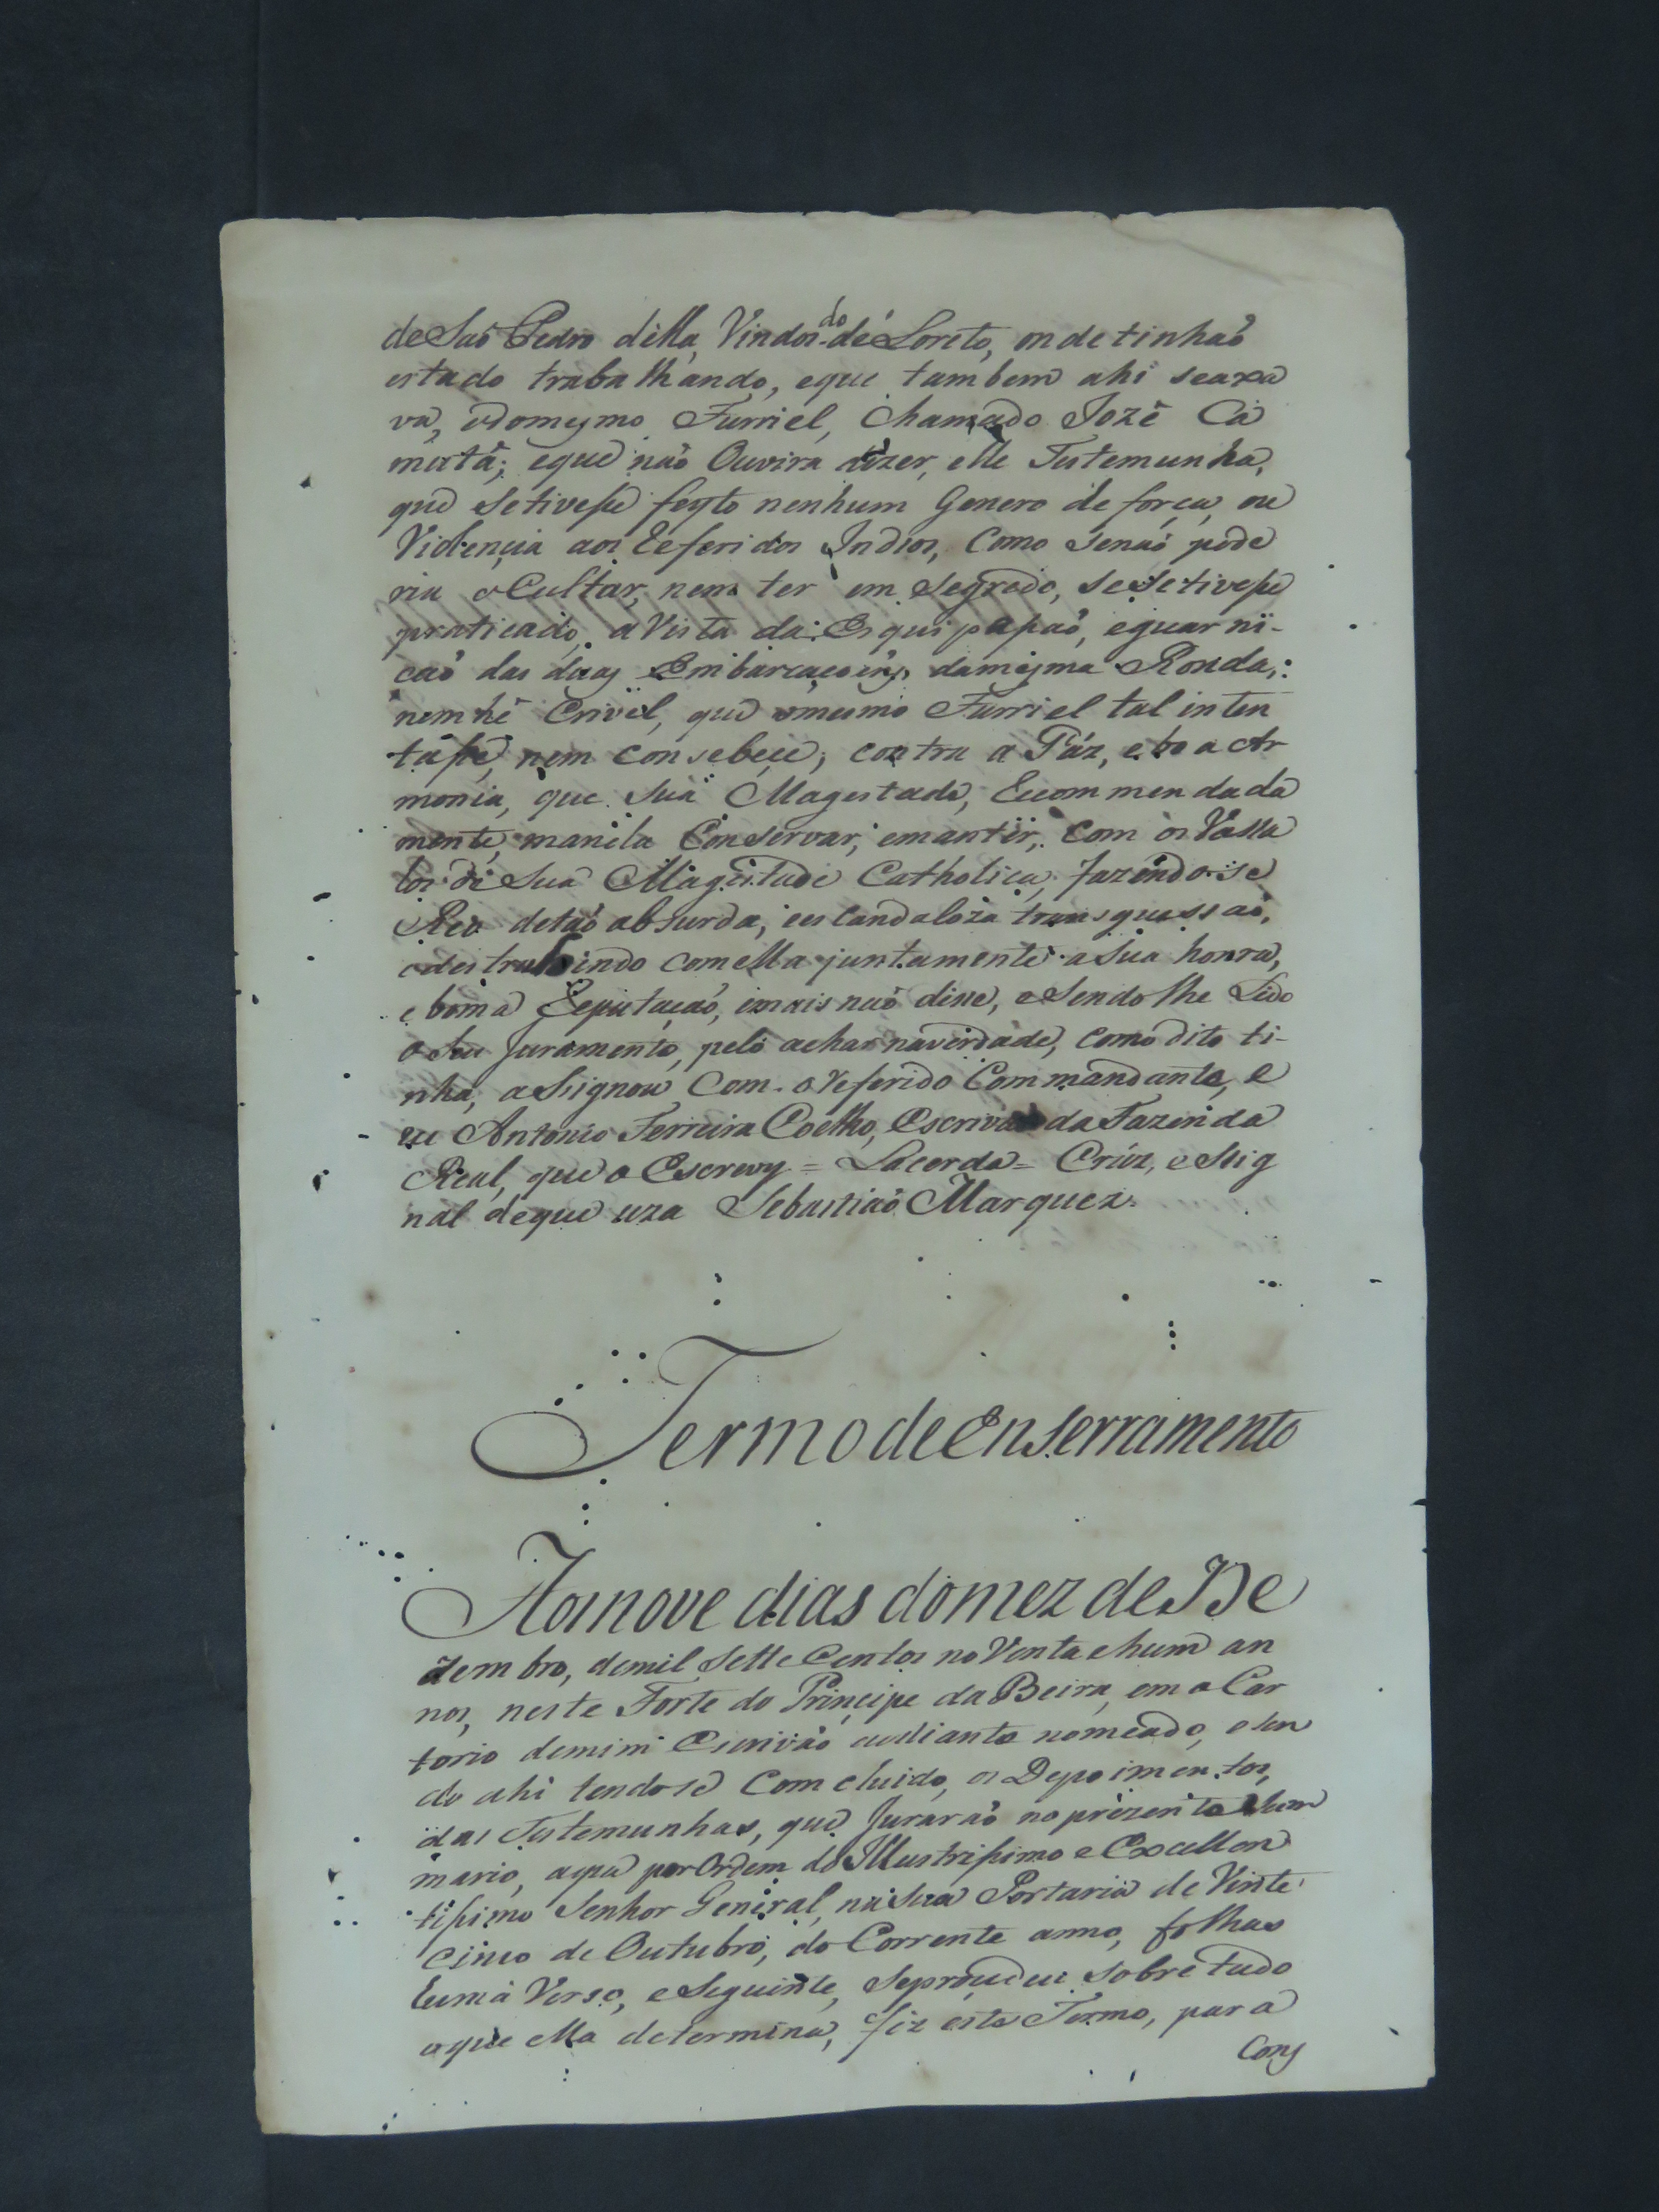 de Saõ Pedro della, Vindos do de Loreto, onde tinhaõ
estado trabalhando, eque tambem ahi seaxa
va, o domesmo Furriel, Chamado Jozé Ca
mutá; eque não Ouvira dizer, elle Testemunha,
que setivesse feyto nenhum Genero de força, ou
Violençia aos Referidos Indios, Como senaõ pode
ria oCultar, nem ter em segredo, se setivesse
praticado, aVista da Esquipassaõ, eguarni-
caõ das duas Embarcaçoins, damesma Ronda,:
nem hé Crivel, que omesmo Furriel tal inten
tasse, nem consebeçe, contra a Páz, eboa Ar
monia, que Sua Magestade, Recommendada
mente, manda Conservar, emantêr, Com os Vassa
los de Sua Magestade Catholica, fazendo-se
Reo detaõ absurda, eescandaloza transgressaõ,
edestruindo comella juntamente a Sua honra,
e boma Reputaçaõ, emais naõ disse, eSendolhe Lido
o Seu Juramento, pelo achar naverdade, como dito ti-
nha, aSsignou Com o referido Commandante, e
eu Antonio Ferreira Coelho, Escrivaõ da Fazenda
Real, que o Escrevy = Lacerda = Crúz, e Sig
nal deque uza Sebastiaõ Marquez.
Termo de Enserramento
Aos nove dias do mez de De
zembro, demil Sette Centos noVenta ehum an
nos, neste Forte do Principe da Beira, em o Car
torio demim Escrivaõ aodiante nomeado, e sen
do ahi tendose Comcluido, os Depoimentos,
das Testemunhas, que Juraraõ no prezente Sum
mario, aque por Ordem do Illustrissimo e Excellen
tissimo Senhor General, na Sua Portaria de Vinte
cinco de Outubro, do Corrente anno, folhas
huma Verso, e Seguinte, Seproçedeu sobre tudo
oque ella determina, fiz este Termo, para
Cons